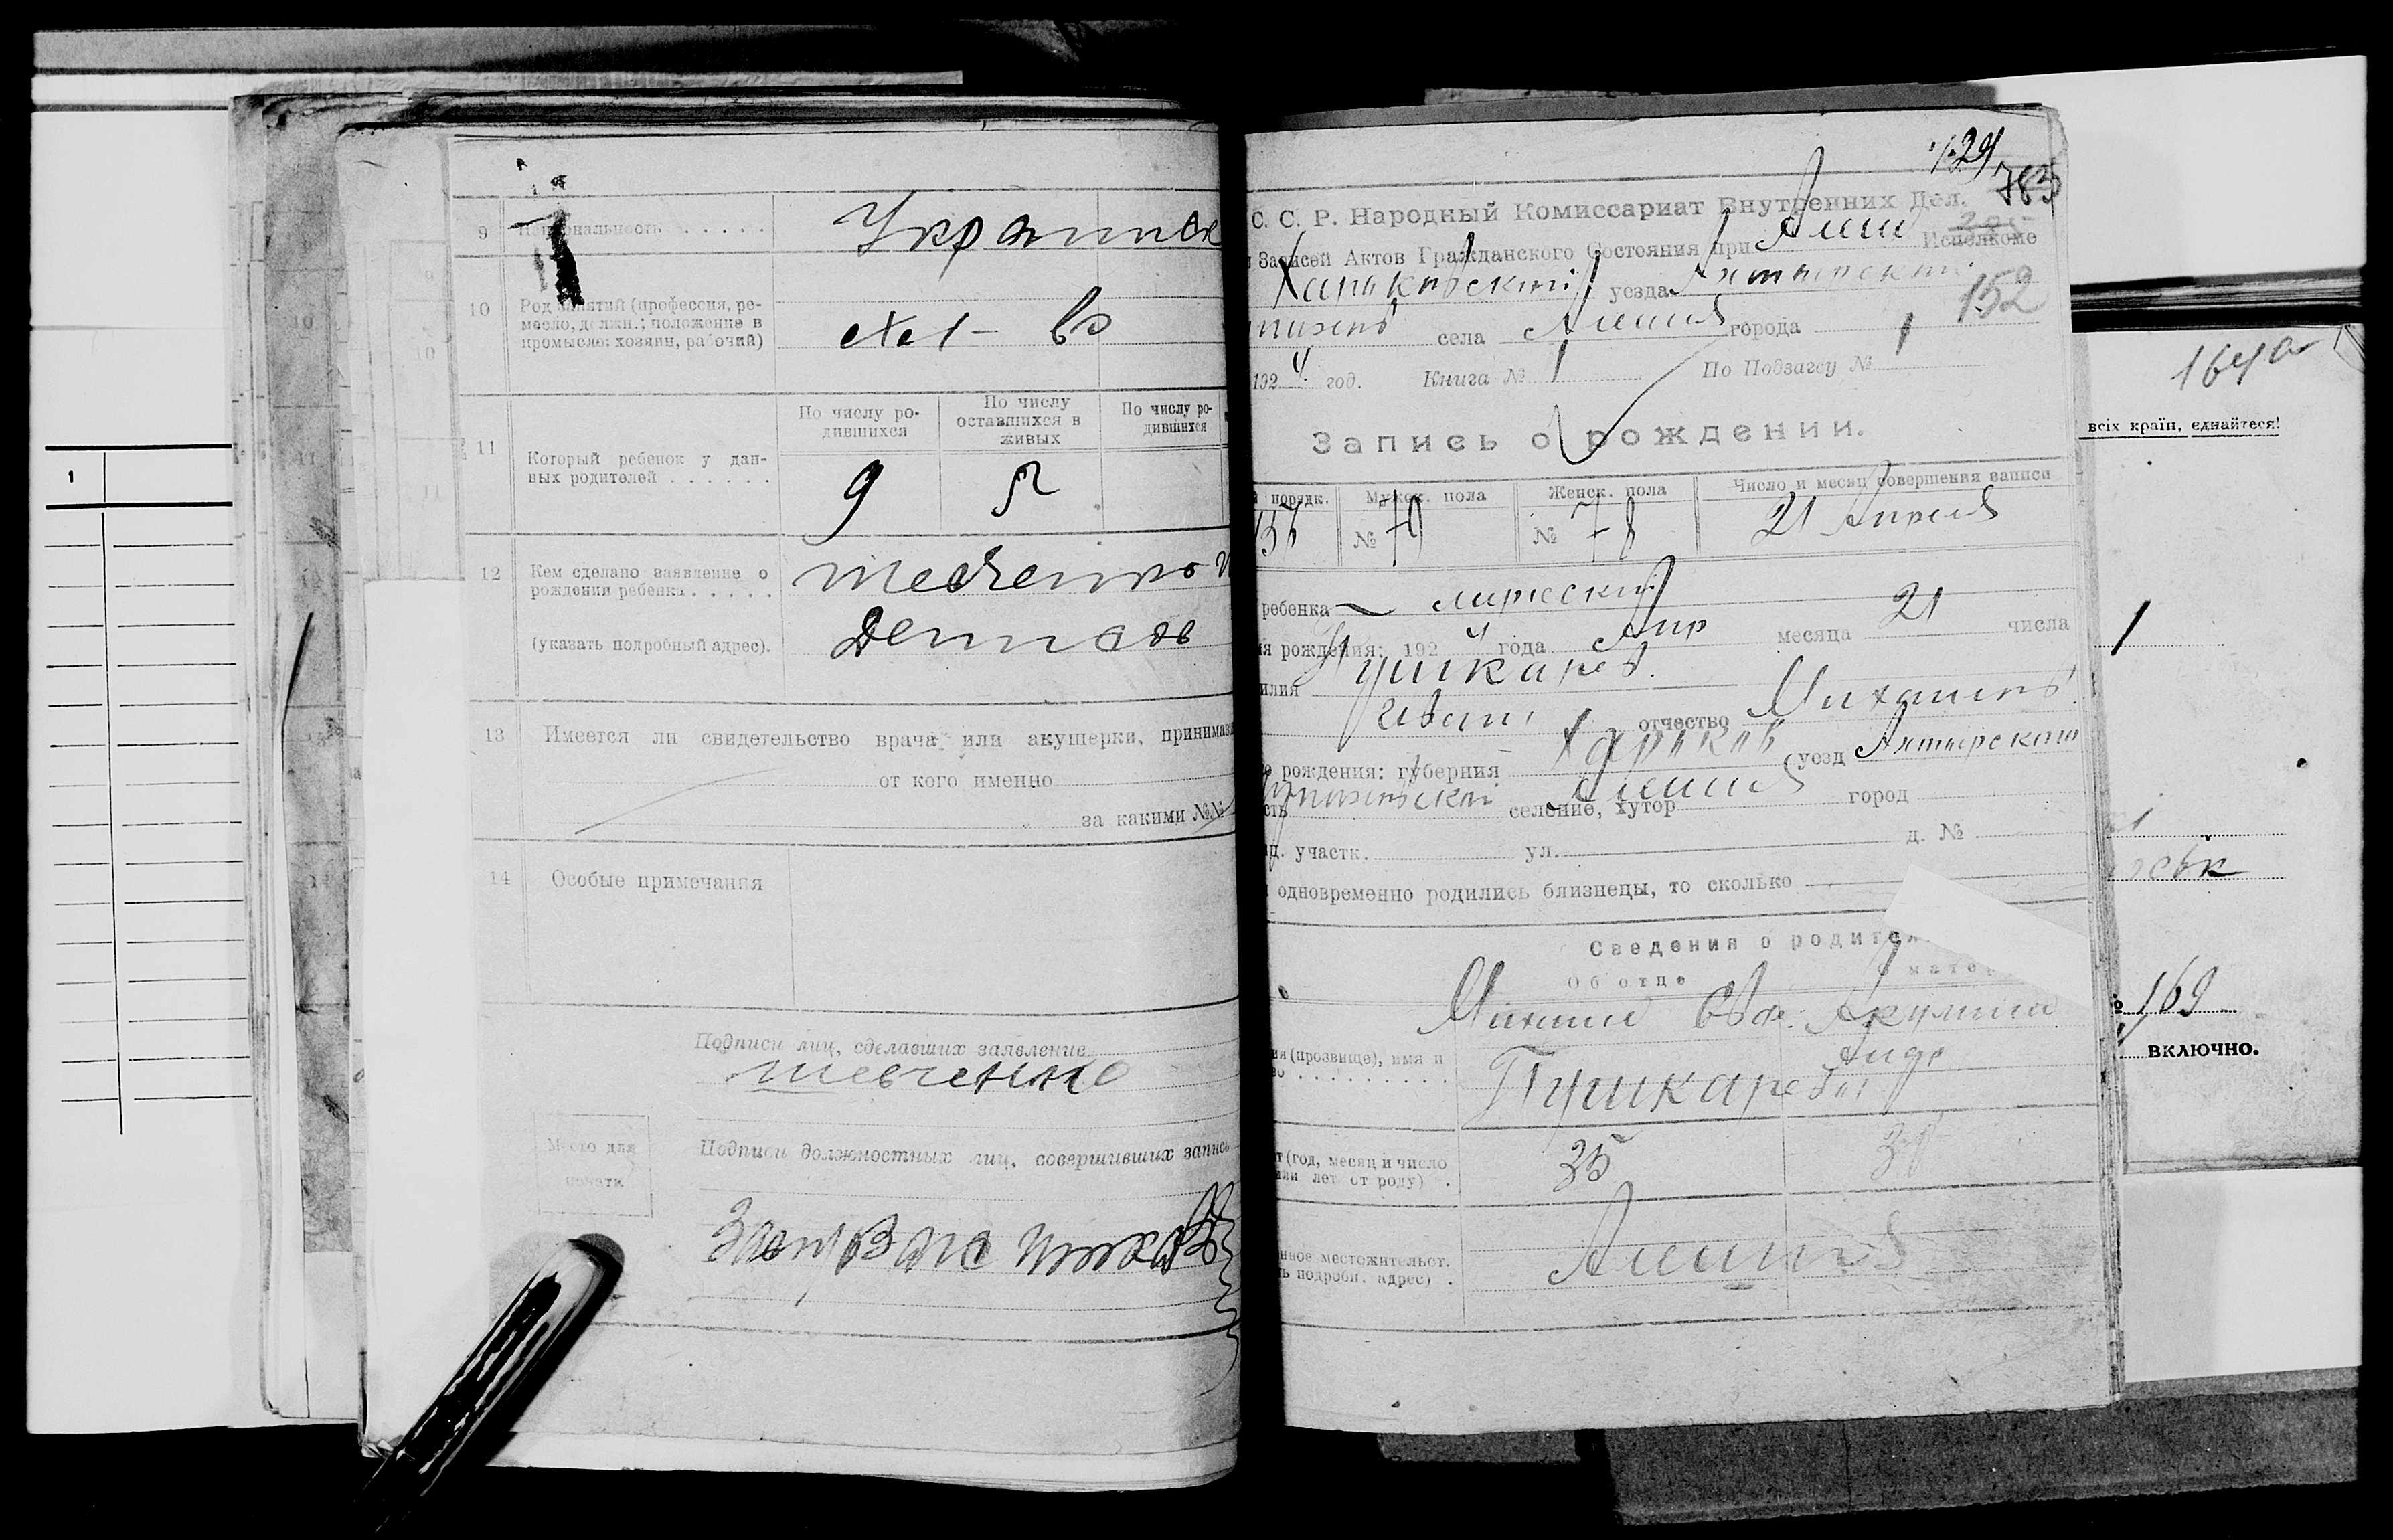 1
9
Национальность . . . . .
Украинск
10
Род занятий (профессия, ре-
месло, должн.; положение в
промысле: хозяин, рабочий)
во
11
Который ребенок у дан-
ных родителей . . . . . .
По числу ро-
дившихся
По числу
оставшихся в
живых
По числу ро-
дившихся
9
5
12
Кем сделано заявление о
рождении ребенка . . . . .
(указать подробный адрес).
Шевченко
Денисов
13
Имеется ли свидетельство врача или акушерки, принимав
от кого именно
за какими №№
14
Особые примечания
Подписи лиц, сделавших заявление
Шевченко
Место для
печати
Подписи должностных лиц, совершивших запись
129
783
С. С. Р. Народный Комиссариат Внутренних Дел.
Записей Актов Гражданского Состояния при Алеш Исполкоме
Харьковской уезда Ахтырский
152
села Алешня города
1924 год. Книга № 1 По Подзагсу № 1
Запись о рождении.
порядк. Мужск. пола Женск. пола Число и месяц совершения записи
157 № 79 № 78 21 Апреля
ребенка мужеский
я рождения: 1924 года Апр месяца 21 числа
илия Пушкарев.
Иван отчество Михаилов
о рождения: губерния Харьков уезд Ахтырском
сть селение, хутор Алешня город
ц. участк. ул. д. №
одновременно родились близнецы, то сколько
Сведения о родител
Об отце
О матер
Михаил Акулина
ия (прозвище), имя и
во . . . . . . . . . .
Андр
Пушкаревы
т (год, месяц и число
или лет от роду) .
35
нное местожительст.
ь подробн. адрес) .
Алешня
164а
всіх країн, єднайтеся!
1
1
ськ
169
включно.